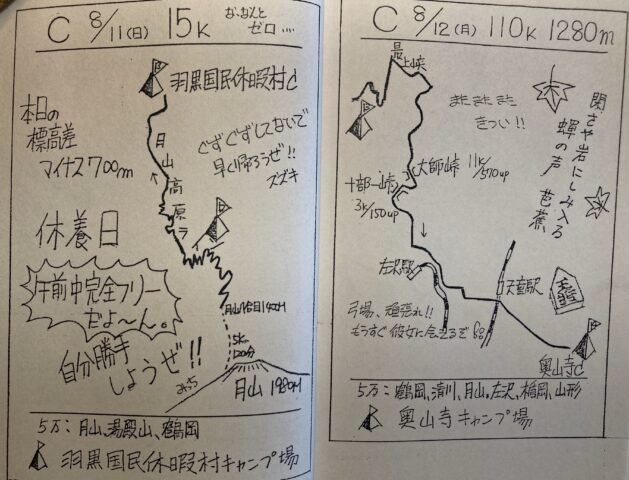 C 8/11(日) 15K な、なんと
ゼロ....
羽黒国民休暇村C
本日の
標高差
マイナス700m
ぐずぐずしてないで
早く帰ろうぜ!!
スズキ
月山高原ラ
休養日
午前中完全フリー
だよ〜ん。
自分勝手
しようぜ!!
みっち
月山8合目1400M
5K
120分
月山 1980M
5万:月山、湯殿山、鶴岡
羽黒国民休暇村キャンプ場
C 8/12(月) 110K 1280m
最上峡
またまたまた
きつい!!
閑さや岩にしみ入る
蝉の声 芭蕉
大師峠 11K/570up
十部一峠
3K/150up
左沢駅
天童駅
弓場、頑張れ!!
もうすぐ彼女に会えるぞ
奥山寺C
5万:鶴岡、清川、月山、左沢、楯岡、山形
奥山寺キャンプ場